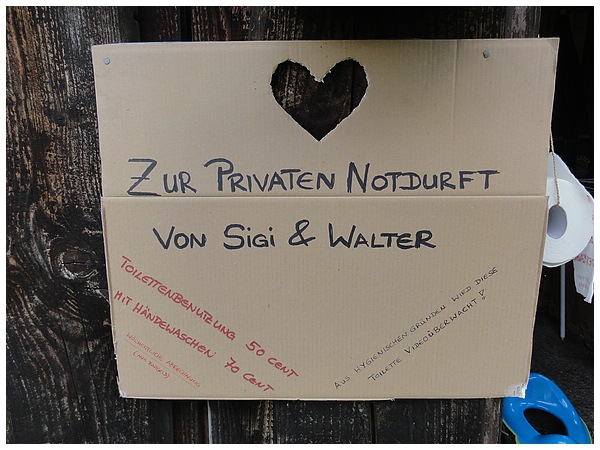 Zur Privaten Notdurft
Von Sigi & Walter
Toilettenbenutzung 50 cent
mit Händewaschen 70 cent
Aus hygienischen Gründen wird diese
Toilette Videoüberwacht!